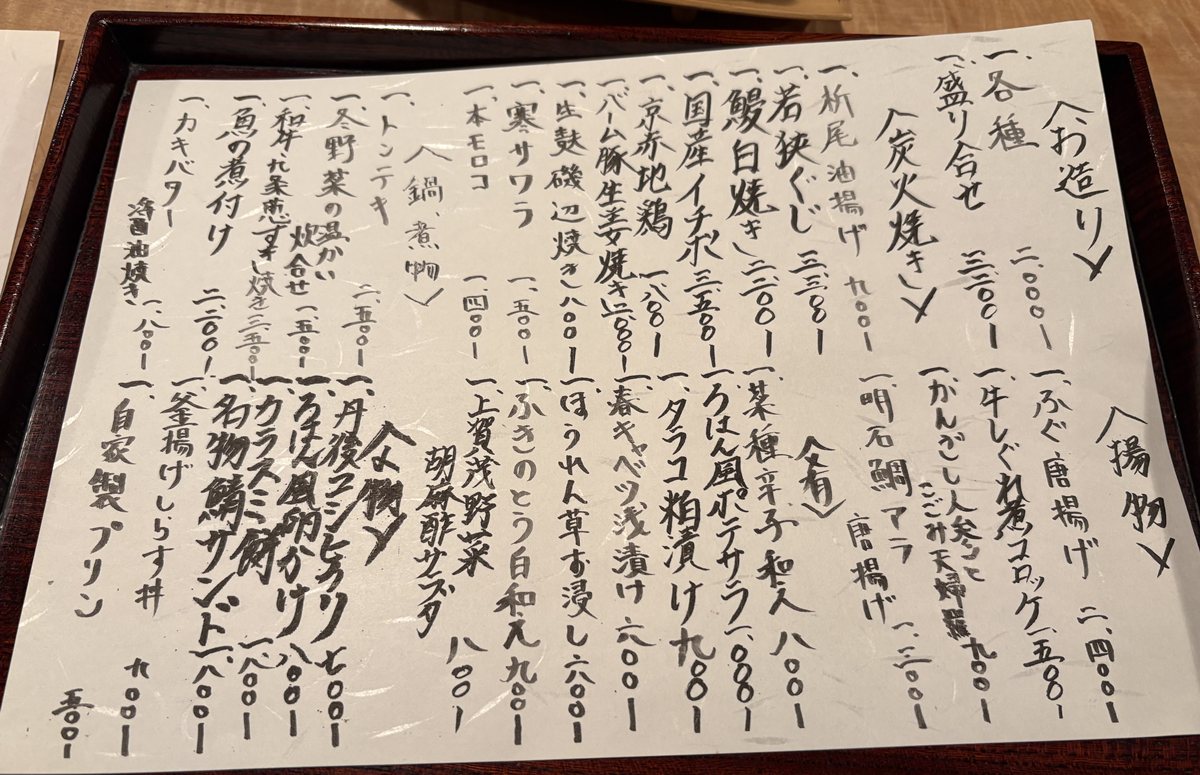 〈お造り〉
一、各種 二、〇〇〇ー
一、盛り合せ 三、三〇〇ー
〈炭火焼き〉
一、栃尾油揚げ 九〇〇ー
一、若狭ぐじ 三、三〇〇ー
一、鰻白焼き 二、二〇〇ー
一、国産イチボ 三、五〇〇ー
一、京赤地鶏 一、八〇〇ー
一、バーム豚生姜焼き 二、〇〇〇ー
一、生麩磯辺焼き 八〇〇ー
一、寒サワラ 一、五〇〇ー
一、本モロコ 一、四〇〇ー
〈鍋、煮物〉
一、トンテキ 二、五〇〇ー
一、冬野菜の温かい
炊合せ 一、五〇〇ー
一、和牛九条葱すきし焼き 二、五〇〇ー
一、魚の煮付け 二、二〇〇ー
一、カキバター
醤油焼き 一、八〇〇ー
〈揚物〉
一、ふぐ唐揚げ 二、四〇〇ー
一、牛しぐれ煮コロッケ 一、五〇〇ー
一、かんざし人参と
こごみ天婦羅 九〇〇ー
一、明石鯛アラ
唐揚げ 一、二〇〇ー
〈肴〉
一、菜種辛子和え 八〇〇ー
一、ろはん風ポテサラ 一、〇〇〇ー
一、タラコ粕漬け 九〇〇ー
一、春キャベツ浅漬け 六〇〇ー
一、ほうれん草お浸し 六〇〇ー
一、ふきのとう白和え 九〇〇ー
一、上賀茂野菜
胡麻酢サラダ 八〇〇ー
〈〆物〉
一、丹後コシヒカリ 七〇〇ー
一、ろはん風卵かけ 八〇〇ー
一、カラスミ餅 一、八〇〇ー
一、名物鯖サンド 一、八〇〇ー
一、釜揚げしらす丼 九〇〇ー
一、自家製プリン 五〇〇ー